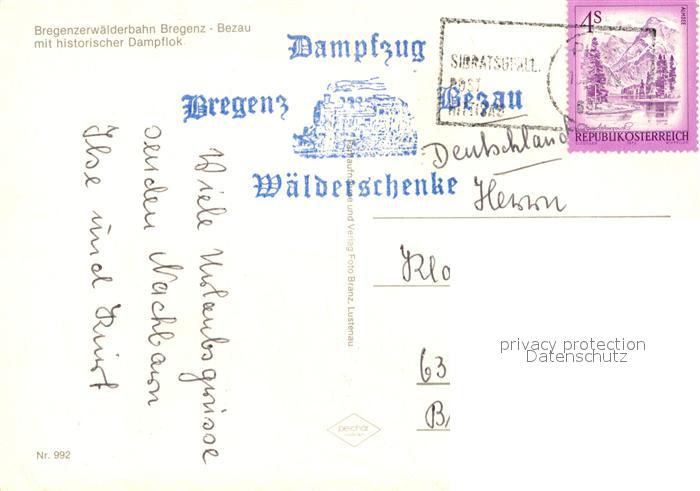 Bregenzerwälderbahn Bregenz - Bezau
mit historischer Dampflok
Dampfzug
Bregenz
Bezau
Wälderschenke
SIBRATSGFÄLL.
POST
4S
ALMSEE
REPUBLIK ÖSTERREICH
Deutschland
Herrn
Klo
63
Viele Urlaubsgrüsse
senden Nachbarn
Ilse und Kurt
und Verlag Foto Branz, Lustenau
privacy protection
Datenschutz
pechar
Nr. 992